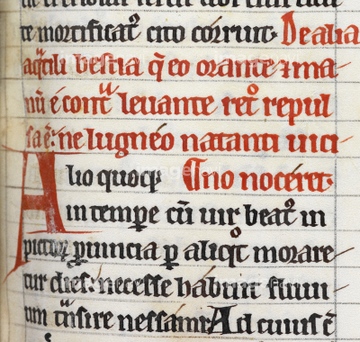 te mortificat᷒ cito corruit. De alia
aq̇tili bestia q̇ eo orante ⁊ ma
nū ē cont͛ leuante ret͛o repul
sa ē: ne lugneo natanti uici
Alio quoq̨ no nocēret.
in tempe cū uir beat᷒ in
pictor̨ ꝓuincia ꝑ aliq̊t morare
tur dies: necesse habuit fluui
um t͛nsire nessam. Ad cuius